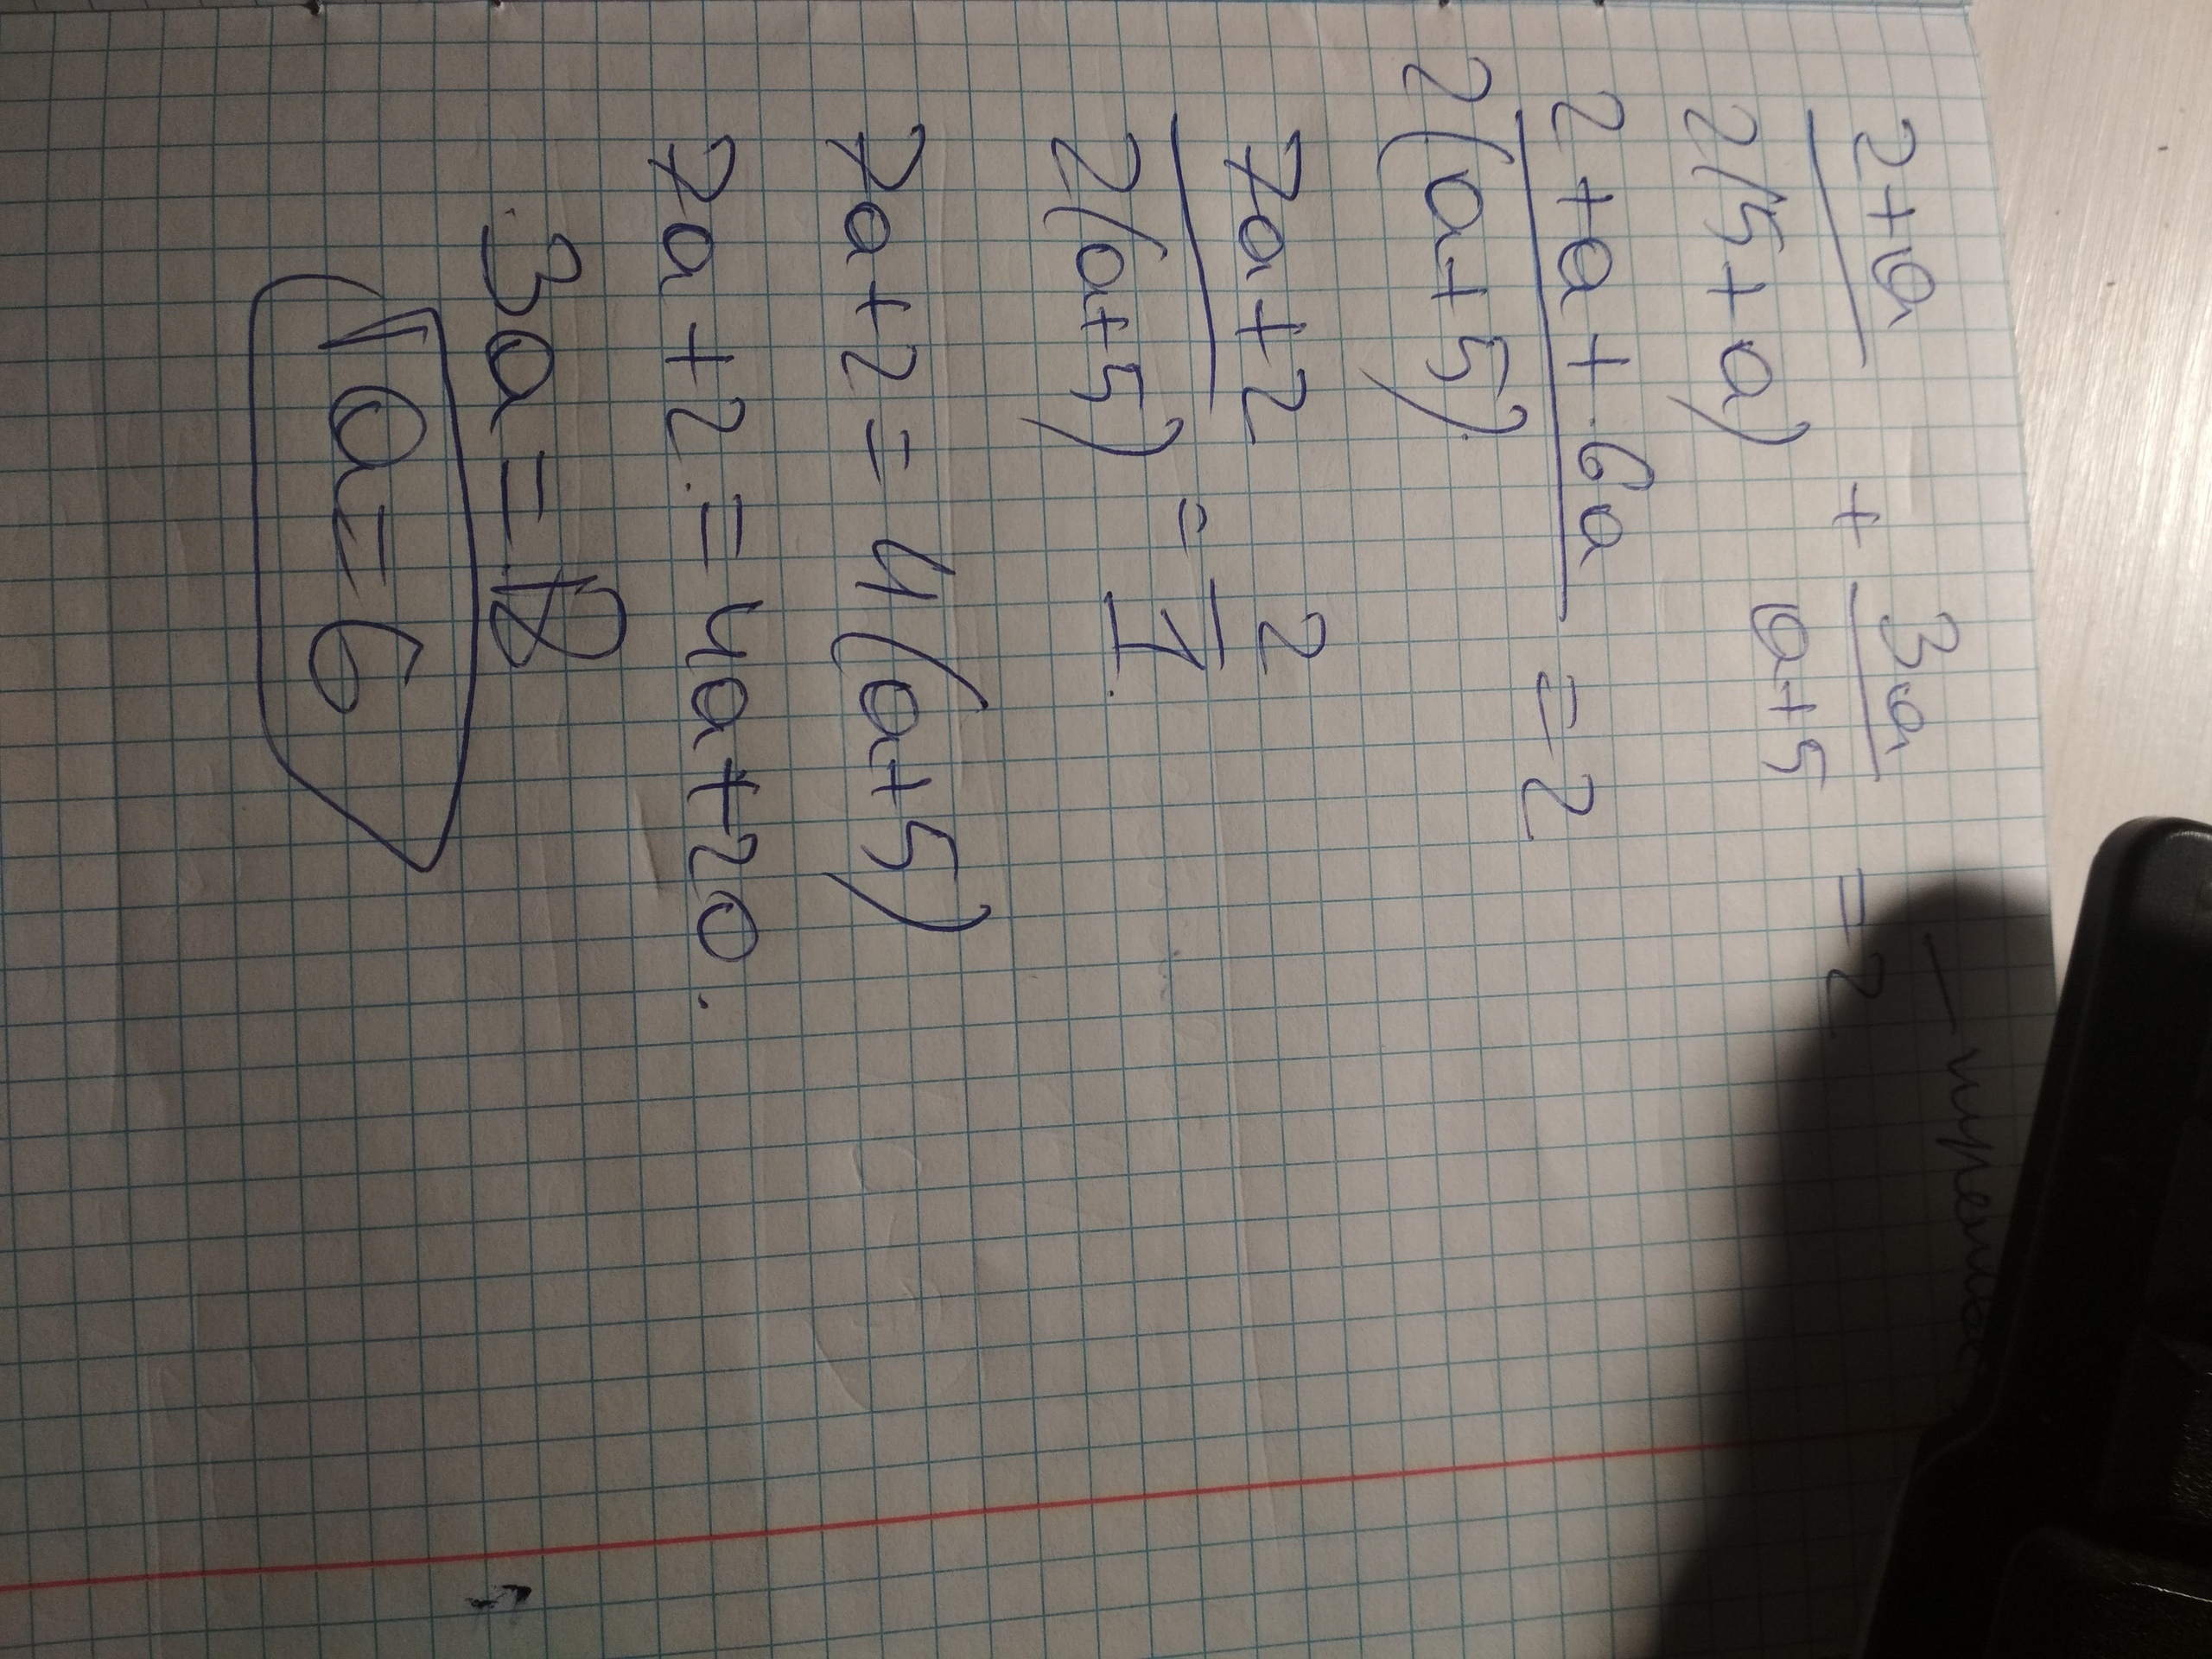 (2+a)/(2(5+a)) + 3a/(a+5) = 2
(2+a+6a)/(2(a+5)) = 2
(7a+2)/(2(a+5)) = 2/1
7a+2 = 4(a+5)
7a+2 = 4a+20.
3a = 18
a = 6